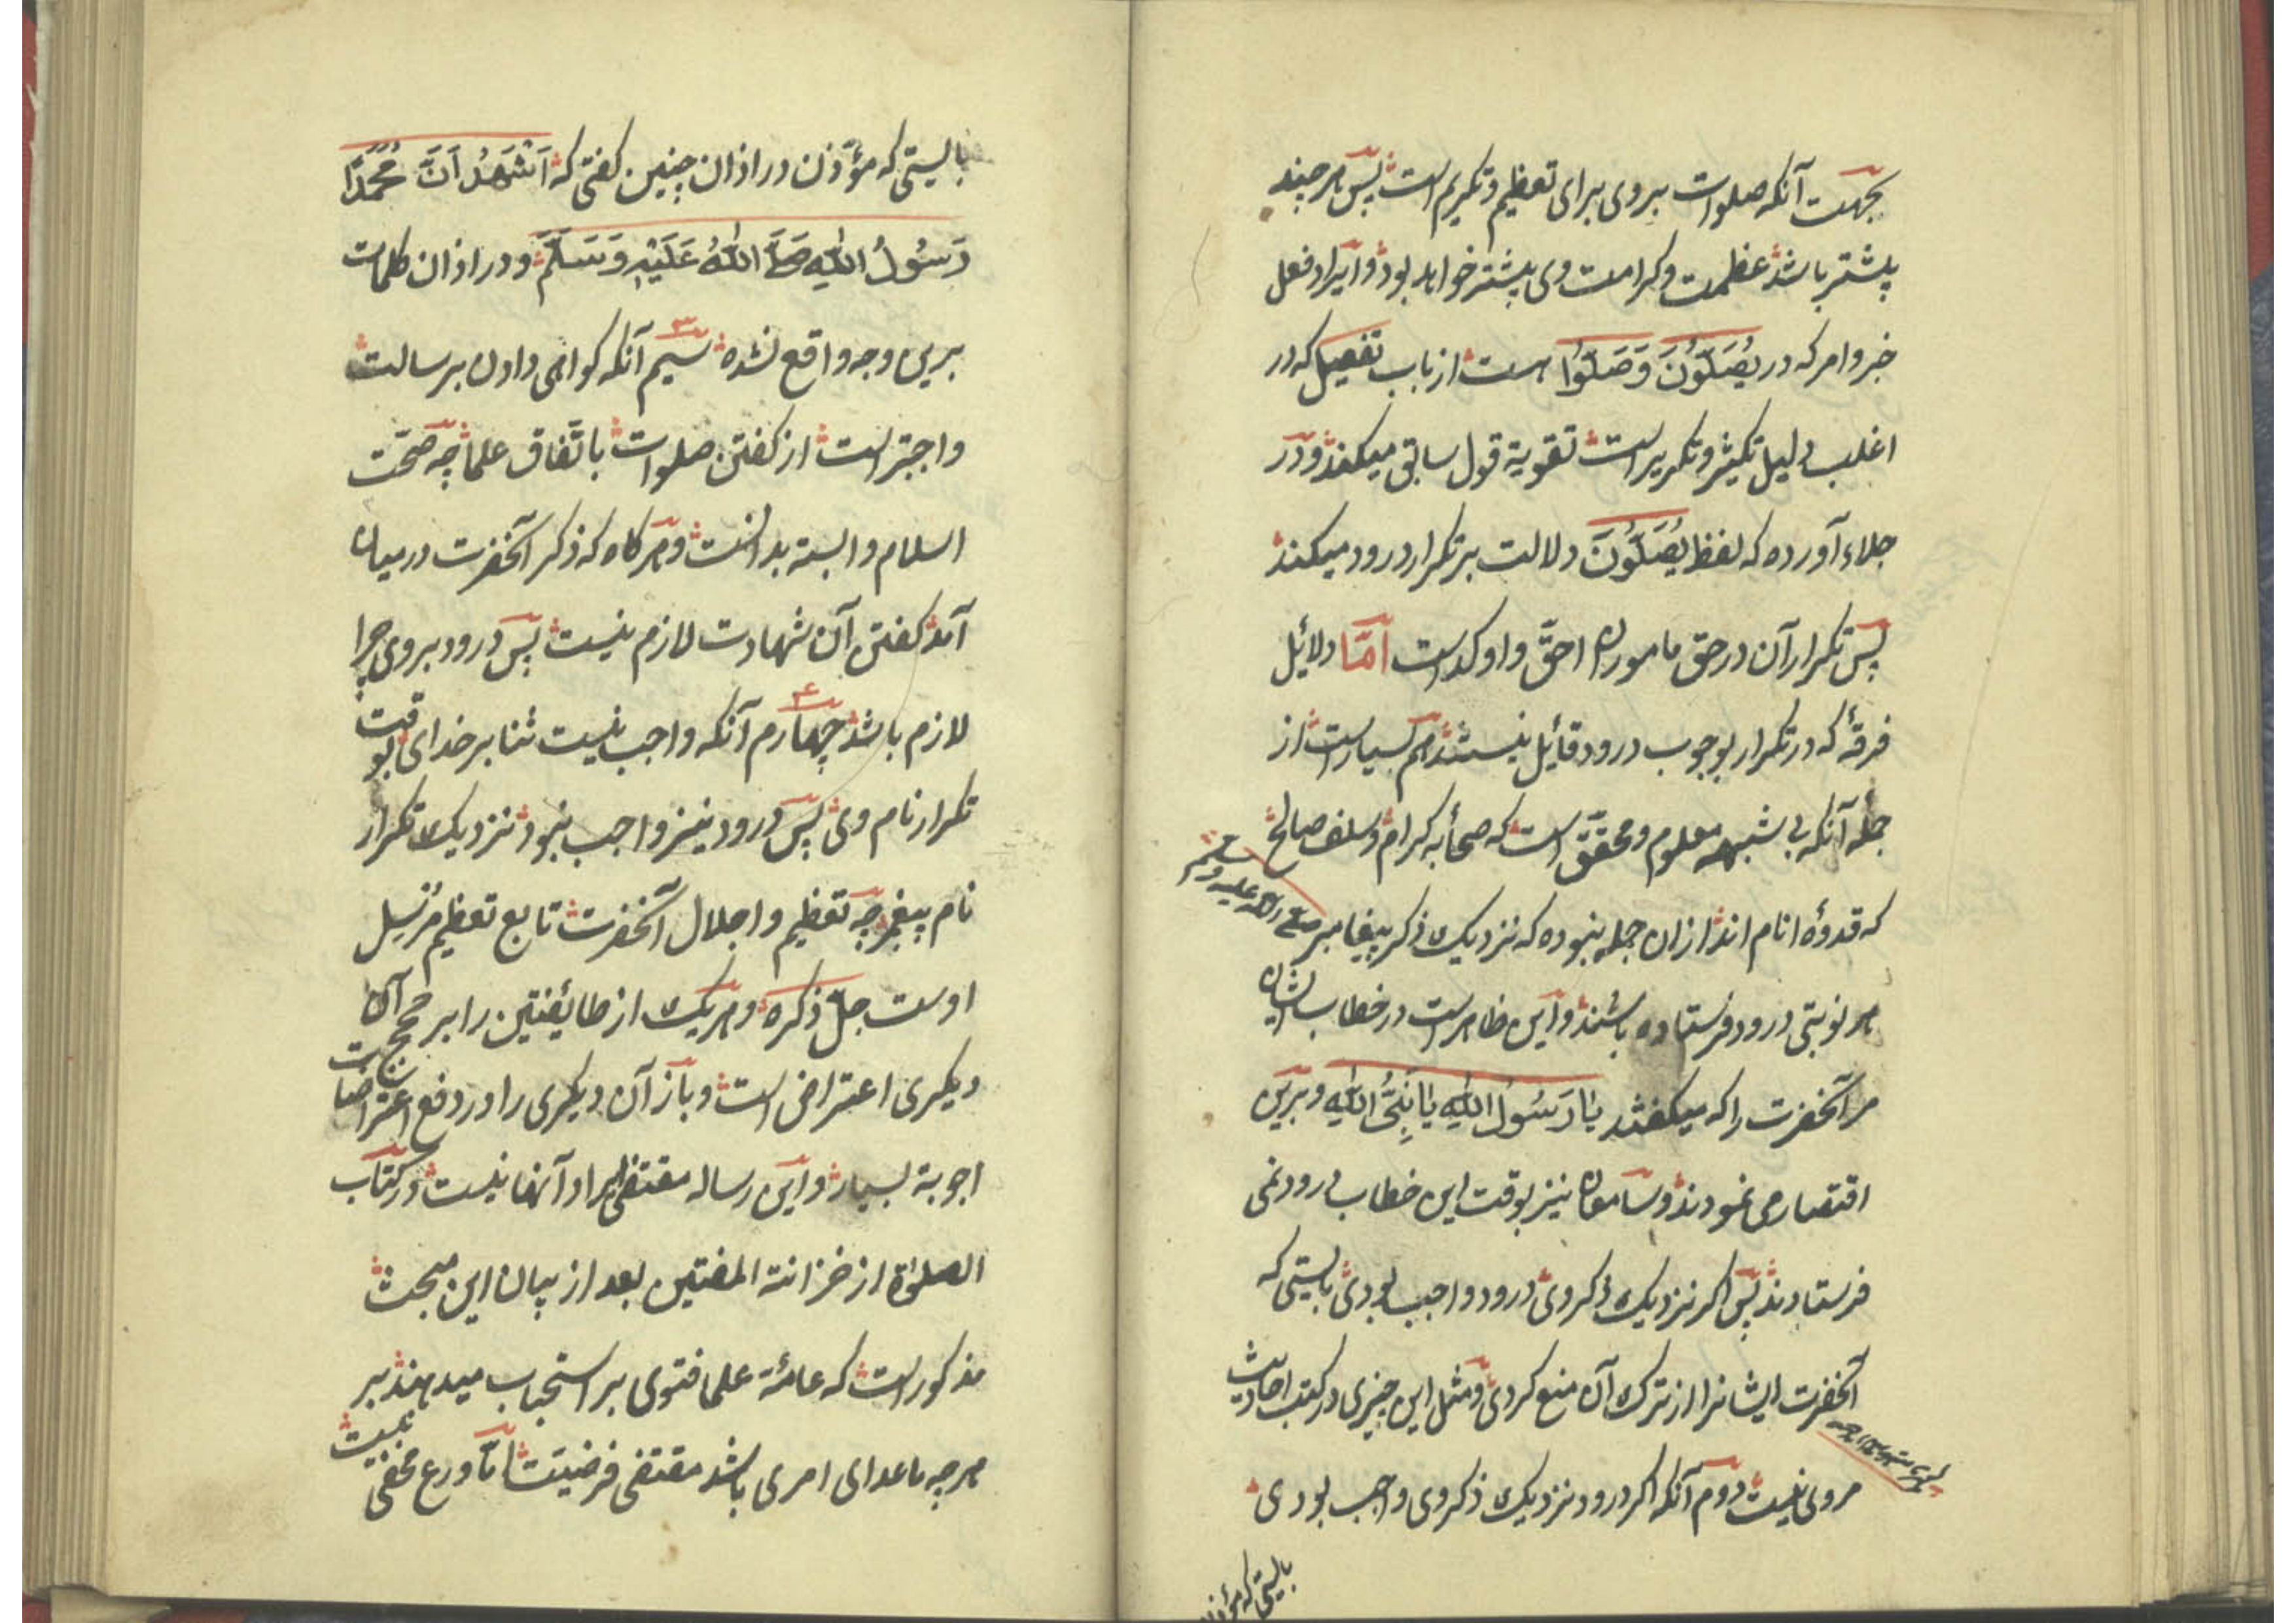 بجهت آنکه صلوات بروی برای تعظیم و تکریم است پس هر چند
بیشتر باشد عظمت و کرامت وی بیشتر خواهد بود و ایراد فعل
خبر و امر که در یُصَلُّونَ وَصَلُّوا هست از باب تفعیل که در
اغلب دلیل تکثیر و تکریر است تقویة قول سابق میکند و در
جلاء آورده که لفظ یُصَلُّونَ دلالت بر تکرار درود میکند
پس تکرار آن در حق ماموران احقّ و اوکد است اَمّا دلائل
فرقهٔ که در تکرار بوجوب درود قائل نیستند هم بسیار است از
جمله آنکه بی شبهه معلوم و محقّق است که صحابهٔ کرام و سلف صالح
که قدوهٔ انام اند ازان جمله نبوده که نزدیک ذکر پیغامبر صلی الله علیه و سلم
هر نوبتی درود فرستاده باشند و این ظاهر است در خطاب ایشان
مر آنحضرت را که میکفتند یَا رَسُولَ اللّٰهِ یَا نَبِیَّ اللّٰهِ و برین
اقتصار می نمودند و سامعان نیز بوقت این خطاب درود نمی
فرستادند پس اکر نزدیک ذکر وی درود واجب بودی بایستی که
آنحضرت ایشانرا از ترک آن منع کردی و مثل این چیزی در کتب احادیث
مروی نیست دوم آنکه اکر درود نزدیک ذکر وی واجب بودی
بایستی که مؤذن
بایستی که مؤذّن در اذان چنین کفتی که اَشْهَدُ اَنَّ مُحَمَّدًا
رَسُولُ اللّٰهِ صَلَّی اللّٰهُ عَلَیْهِ وَسَلَّمَ و در اذان کلمات
برین وجه واقع نشده سیم آنکه کواهی دادن بر رسالت
واجبتر است از کفتن صلوات باتّفاق علما چه صحّت
اسلام وابسته بدانست و هرکاه که ذکر آنحضرت درمیان
آمد کفتن آن شهادت لازم نیست پس درود بروی چرا
لازم باشد چهارم آنکه واجب نیست ثنا بر خدای بوقت
تکرار نام وی پس درود نیز واجب نبود نزدیک تکرار
نام پیغمبر چه تعظیم و اجلال آنحضرت تابع تعظیم مُرسِل
اوست جلّ ذکره و هر یک از طائفتین را بر حجج آن
دیکری اعتراض است و باز آن دیکری را در دفع اعتراضات
اجوبة بسیار و این رساله مقتضی ایراد آنها نیست در کتاب
الصلوٰة از خزانة المفتین بعد از بیان این مبحث
مذکور است که عامّهٔ علما فتوی بر استحباب میدهند بر
هر چه ماعدای امری باشد مقتضی فرضیّت امّا ورع مخفی نیست